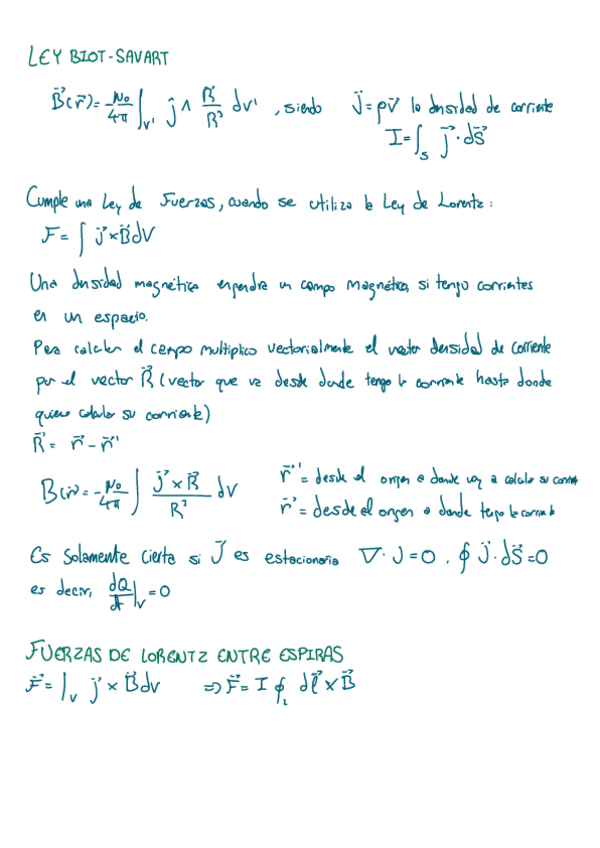 LEY BIOT-SAVART
B⃗(r⃗) = μ₀/4π ∫_V' j⃗ ∧ R⃗/R³ dv' , siendo J⃗ = ρv⃗ la densidad de corriente
I = ∫_S j⃗ · dS⃗
Cumple una Ley de Fuerzas, cuando se utiliza la Ley de Lorentz:
F = ∫ j⃗ × B⃗ dV
Una densidad magnética engendra un campo magnético, si tengo corrientes
en un espacio.
Para calcular el campo multiplico vectorialmente el vector densidad de corriente
por el vector R⃗ (vector que va desde donde tengo la corriente hasta donde
quiero calcular su corriente)
R⃗ = r⃗ - r⃗'
B(r⃗) = μ₀/4π ∫ j⃗ × R⃗ / R³ dV r⃗' = desde el origen a donde voy a calcular su corriente
r⃗ = desde el origen a donde tengo la corriente
Es Solamente cierta si J⃗ es estacionaria ∇ · J = 0 . ∮ J⃗ · dS⃗ = 0
es decir, dQ/dt |_V = 0
FUERZAS DE LORENTZ ENTRE ESPIRAS
F⃗ = ∫_V j⃗ × B⃗ dv ⇒ F⃗ = I ∮_L dl⃗ × B⃗